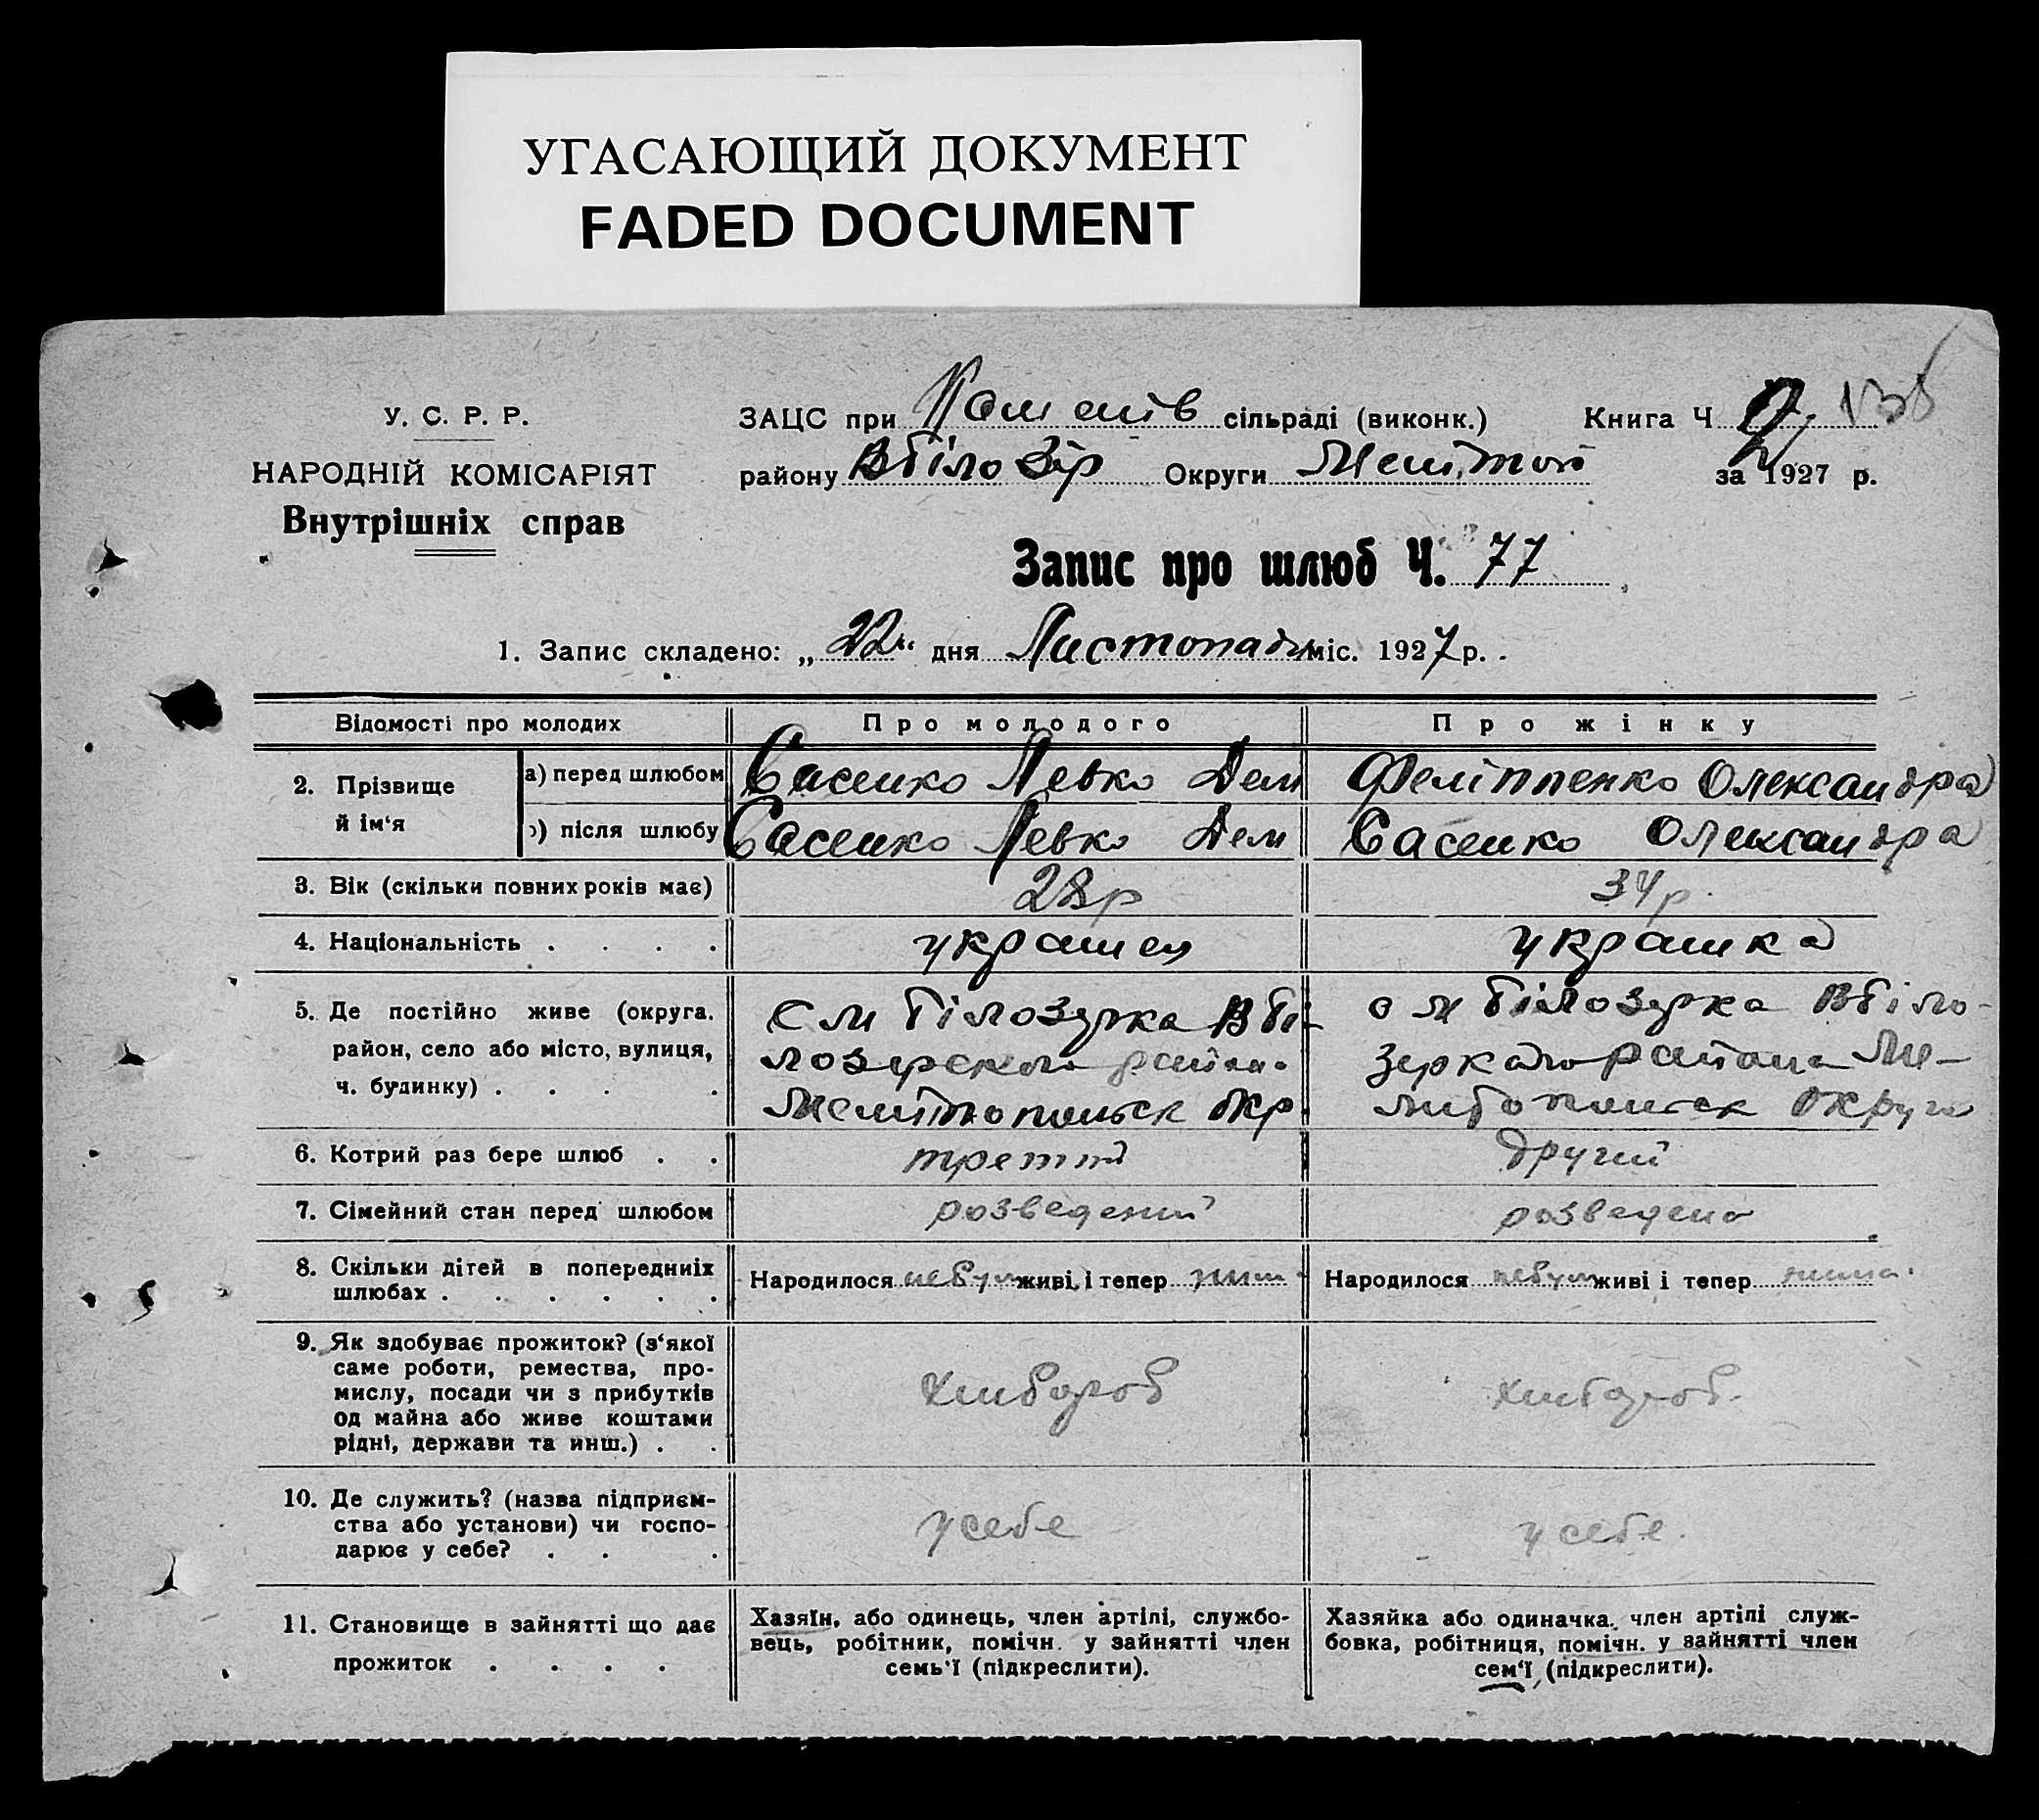 УГАСАЮЩИЙ ДОКУМЕНТ
FADED DOCUMENT
У. С. Р. Р.
НАРОДНІЙ КОМІСАРІЯТ
Внутрішніх справ
ЗАЦС при сільраді (виконк.) Книга Ч
району Вбілозір Округи Меліт за 1927 р.
Запис про шлюб Ч. 77
1. Запис складено: „22“ дня Листопада міс. 1927 р.
Відомості про молодих Про молодого Про жінку
2. Прізвище й ім‘я
а) перед шлюбом Сасенко Левко Дем Феліппенко Олександра
б) після шлюбу Сасенко Левко Дем Сасенко Олександра
3. Вік (скільки повних років має) 28р 34р.
4. Національність . . . . украинец украинка
5. Де постійно живе (округа, район, село або місто, вулиця, ч. будинку) . . . .
с м білозерка Вбі-
лозерского района
Мелітопольск окр.
с м білозерка Вбіло-
зеркаго района Ме-
литопольск Округа
6. Котрий раз бере шлюб . . третий другий
7. Сімейний стан перед шлюбом розведений розведена
8. Скільки дітей в попередниіх шлюбах . . . . . .
Народилося небуло живі і тепер нима
Народилося небуло живі і тепер нима.
9. Як здобуває прожиток? (з‘якої
саме роботи, ремества, про-
мислу, посади чи з прибутків
од майна або живе коштами
рідні, держави та инш.) . .
хлибороб хлибороб.
10. Де служить? (назва підприєм-
ства або установи) чи госпо-
дарює у себе? . . .
у себе у себе.
11. Становище в зайнятті що дає
прожиток . . . .
Хазяїн, або одинець, член артілі, службо-
вець, робітник, помічн. у зайнятті член
семь‘ї (підкреслити).
Хазяйка або одиначка. член артілі служ-
бовка, робітниця, помічн. у зайнятті член
сем‘ї, (підкреслити).